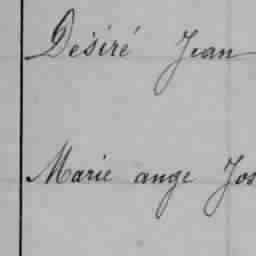 Désiré Jean
Marie ange Jos